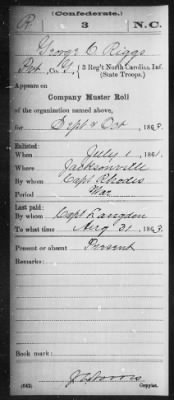 (Confederate.)
R 3 N.C.
George C. Riggs
Pvt, Co. G, 3 Reg't North Carolina Inf.
(State Troops.)
Appears on
Company Muster Roll
of the organization named above,
for Sept & Oct, 1863.
Enlisted:
When July 1, 1861.
Where Jacksonville
By whom Capt Rhodes
Period War
Last paid:
By whom Capt Langdon
To what time Aug 31, 1863.
Present or absent Present
Remarks:
Book mark:
(642) Copyist.